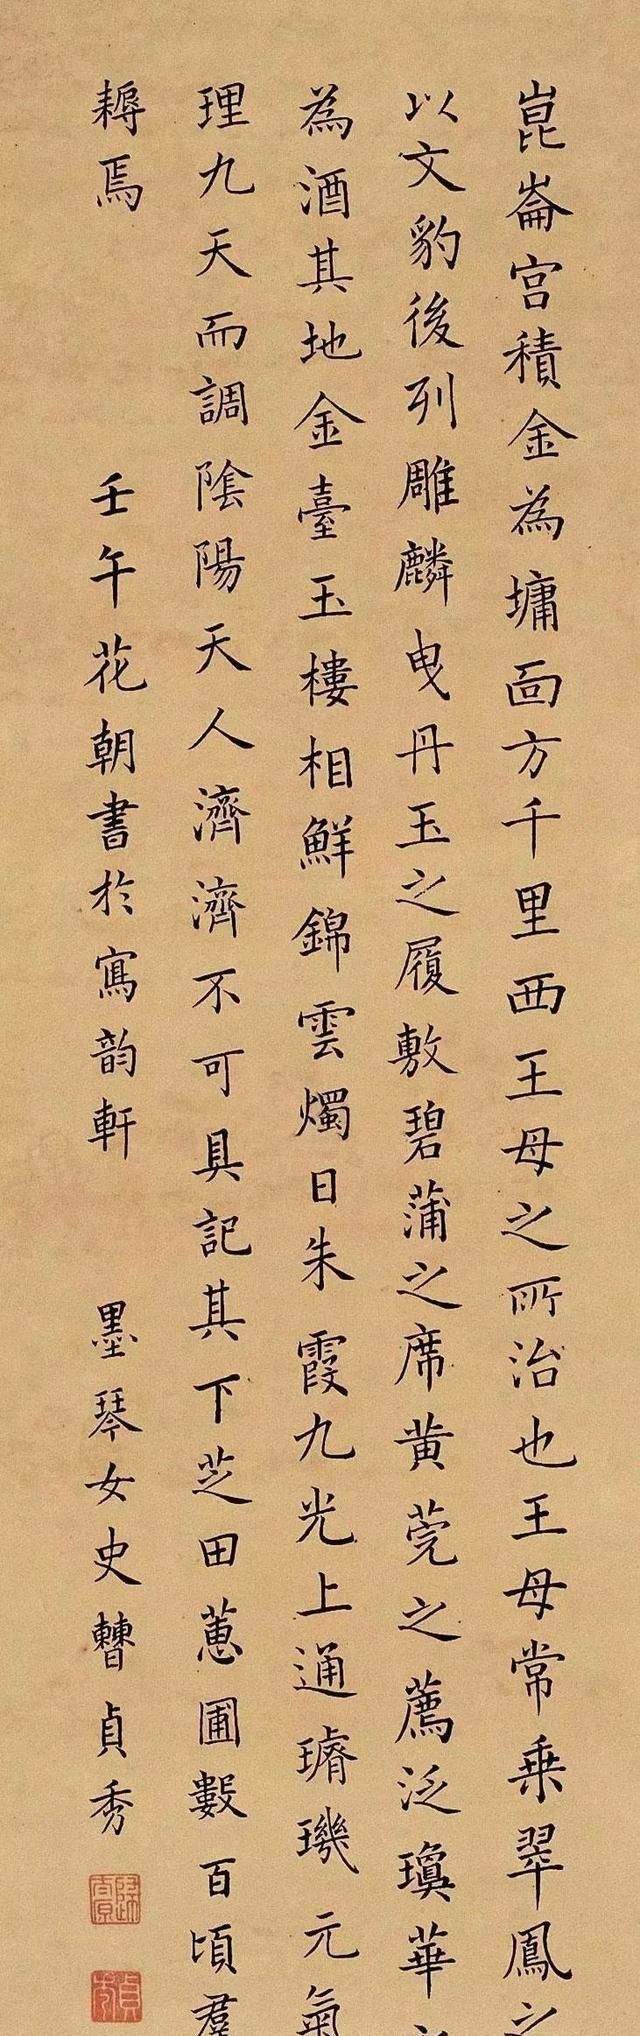 崑崙宮積金為墉面方千里西王母之所治也王母常乗翠鳳之
以文豹後列雕麟曳丹玉之履敷碧蒲之席黄莞之薦泛瓊華
為酒其地金臺玉樓相鮮錦雲燭日朱霞九光上通璿璣元氣
理九天而調陰陽天人濟濟不可具記其下芝田蕙圃數百頃羣
耨焉
壬午花朝書於寫韵軒
墨琴女史曹貞秀